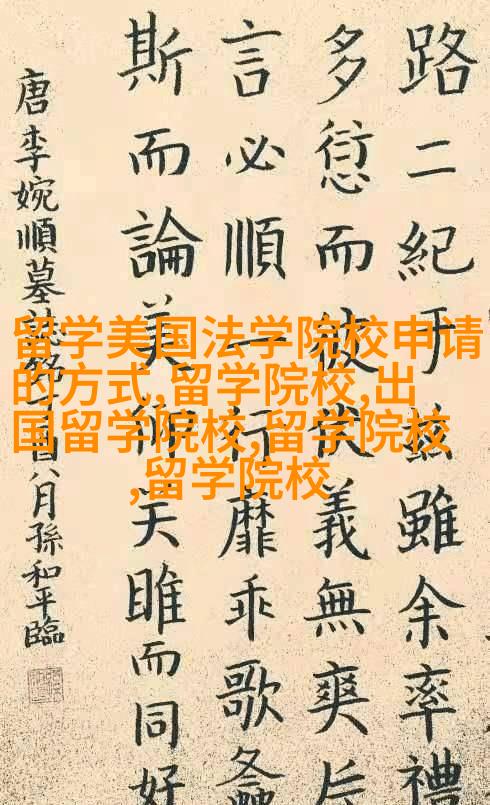 路二紀于茲雖余率禮
多愆而彼義無爽
言必順一行靡乖歌
斯而論美雎而同好
唐李婉順墓誌銘丁酉八月孫和平臨
留学美国法学院校申请
的方式,留学院校,出
国留学院校,留学院校
,留学院校